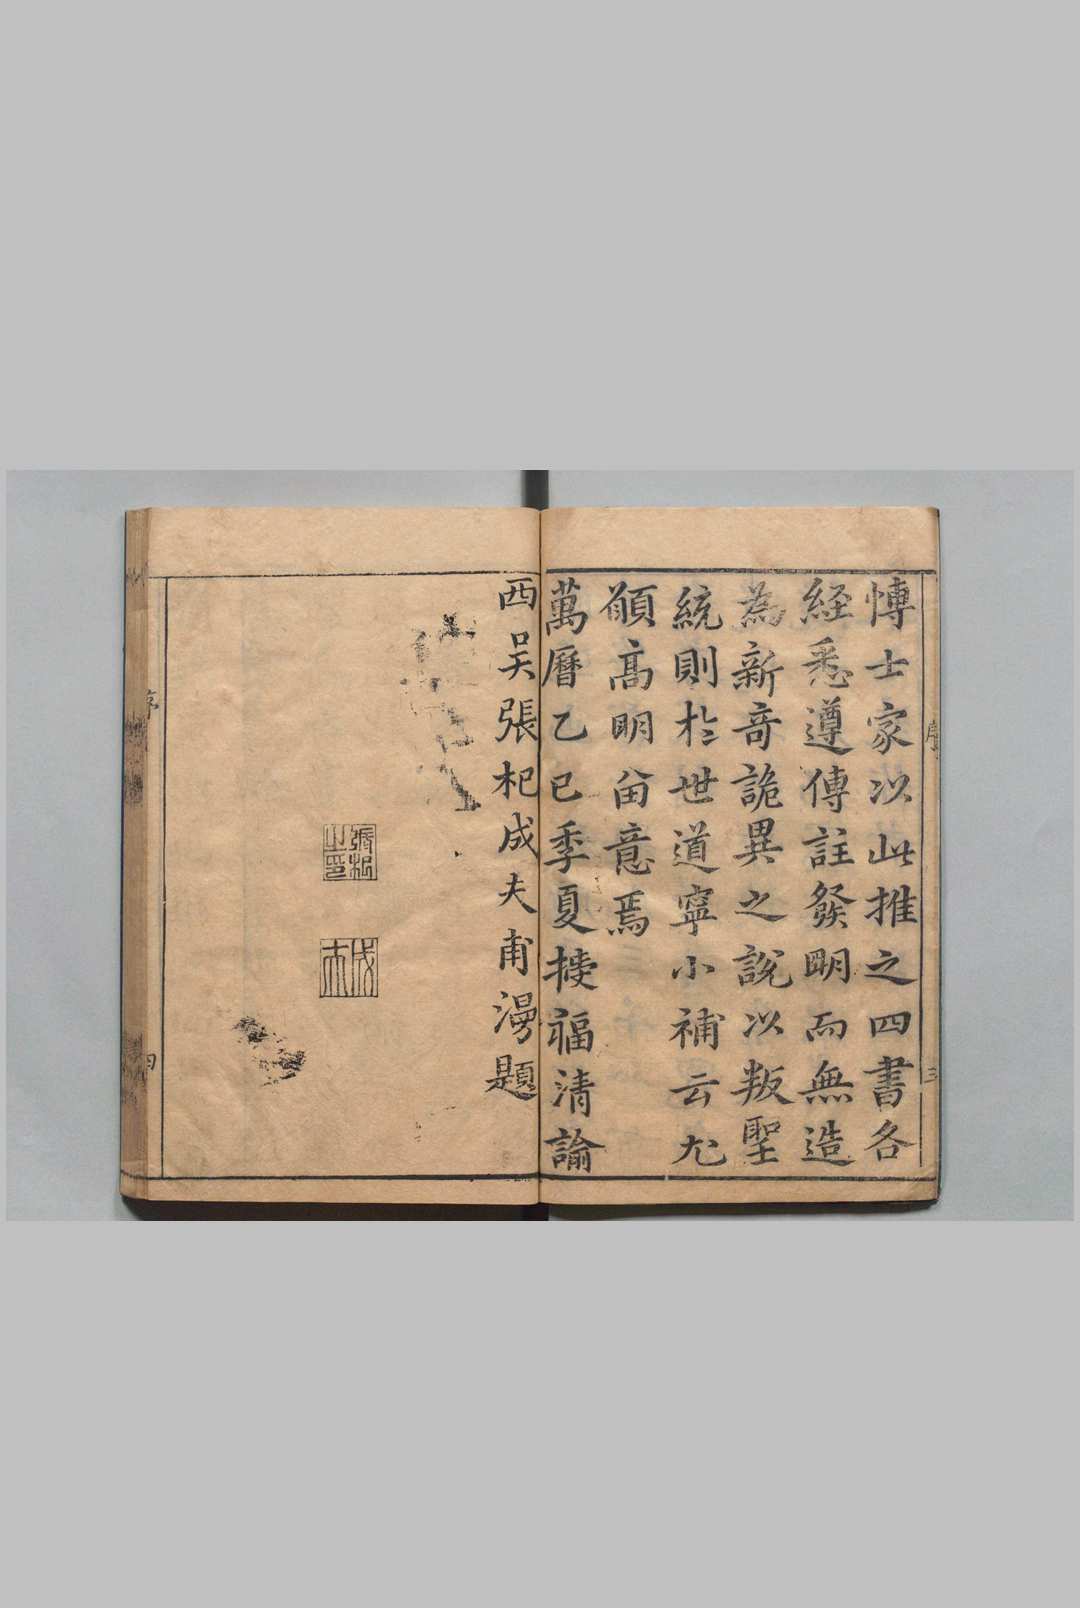 序 三
愽士家以此推之四書各
經悉遵傳註發明而無造
為新竒詭異之說以叛聖
統則於世道寧小補云尤
願高明留意焉
萬曆乙巳季夏福清諭
西吴張杞成夫甫漫題
張杞之印
成夫
序 四